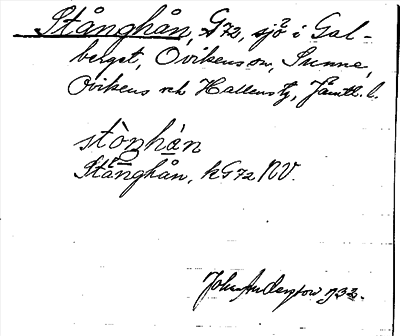 Stånghån, G72, sjö i Gal-
berget, Ovikens sn, Sunne,
Ovikens och Hallens tg, Jämtl. l.
stòŋhán
Stånghån, kG72 NV.
John Anderson 1932.